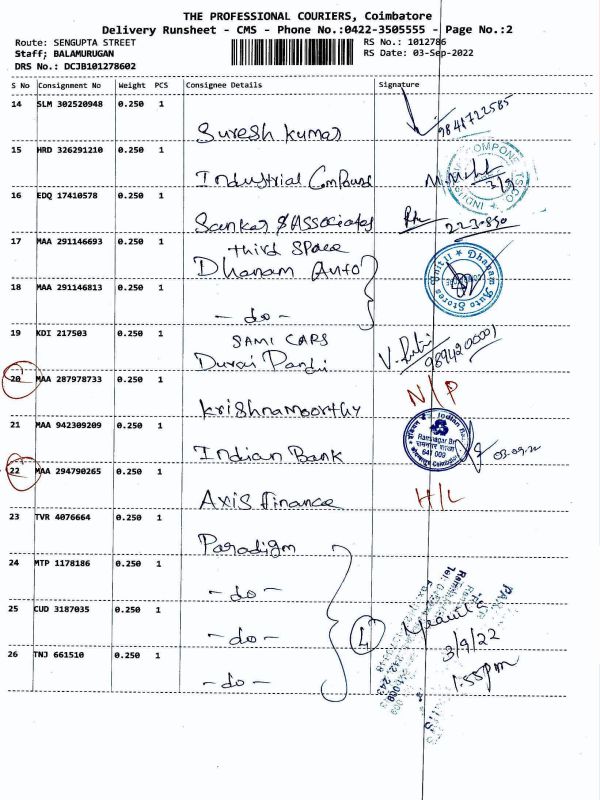 THE PROFESSIONAL COURIERS, Coimbatore
Delivery Runsheet - CMS - Phone No.:0422-3505555 - Page No.:2
Route: SENGUPTA STREET
RS No.: 1012786
Staff; BALAMURUGAN
RS Date: 03-Sep-2022
DRS No.: DCJB101278602
S No Consignment No Weight PCS Consignee Details Signature
14 SLM 302520948 0.250 1
Suresh Kumar 9841722585
15 HRD 326291210 0.250 1
Industrial
16 EDQ 17410578 0.250 1
Sankar & Associates
17 MAA 291146693 0.250 1
third space
Dhanam Auto
Dhanam Auto Stores Unit II
18 MAA 291146813 0.250 1
- do -
19 KDI 217503 0.250 1
SAMI CARS
Durai Pandi
20 MAA 287978733 0.250 1 N/P
Krishnamoorthy
21 MAA 942309209 0.250 1
Indian Bank
641 009
22 MAA 294790265 0.250 1
Axis Finance H/L
23 TVR 4076664 0.250 1
Paradigm
24 MTP 1178186 0.250 1
- do -
25 CUD 3187035 0.250 1
- do - 4
3/9/22
26 TNJ 661510 0.250 1
1.55pm
- do -